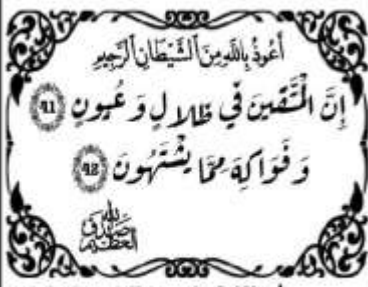 أَعُوذُ بِاللَّهِ مِنَ الشَّيْطَانِ الرَّجِيمِ
إِنَّ الْمُتَّقِينَ فِي ظِلَالٍ وَعُيُونٍ ﴿41﴾
وَفَوَاكِهَ مِمَّا يَشْتَهُونَ ﴿42﴾
صَدَقَ اللَّهُ الْعَظِيمُ